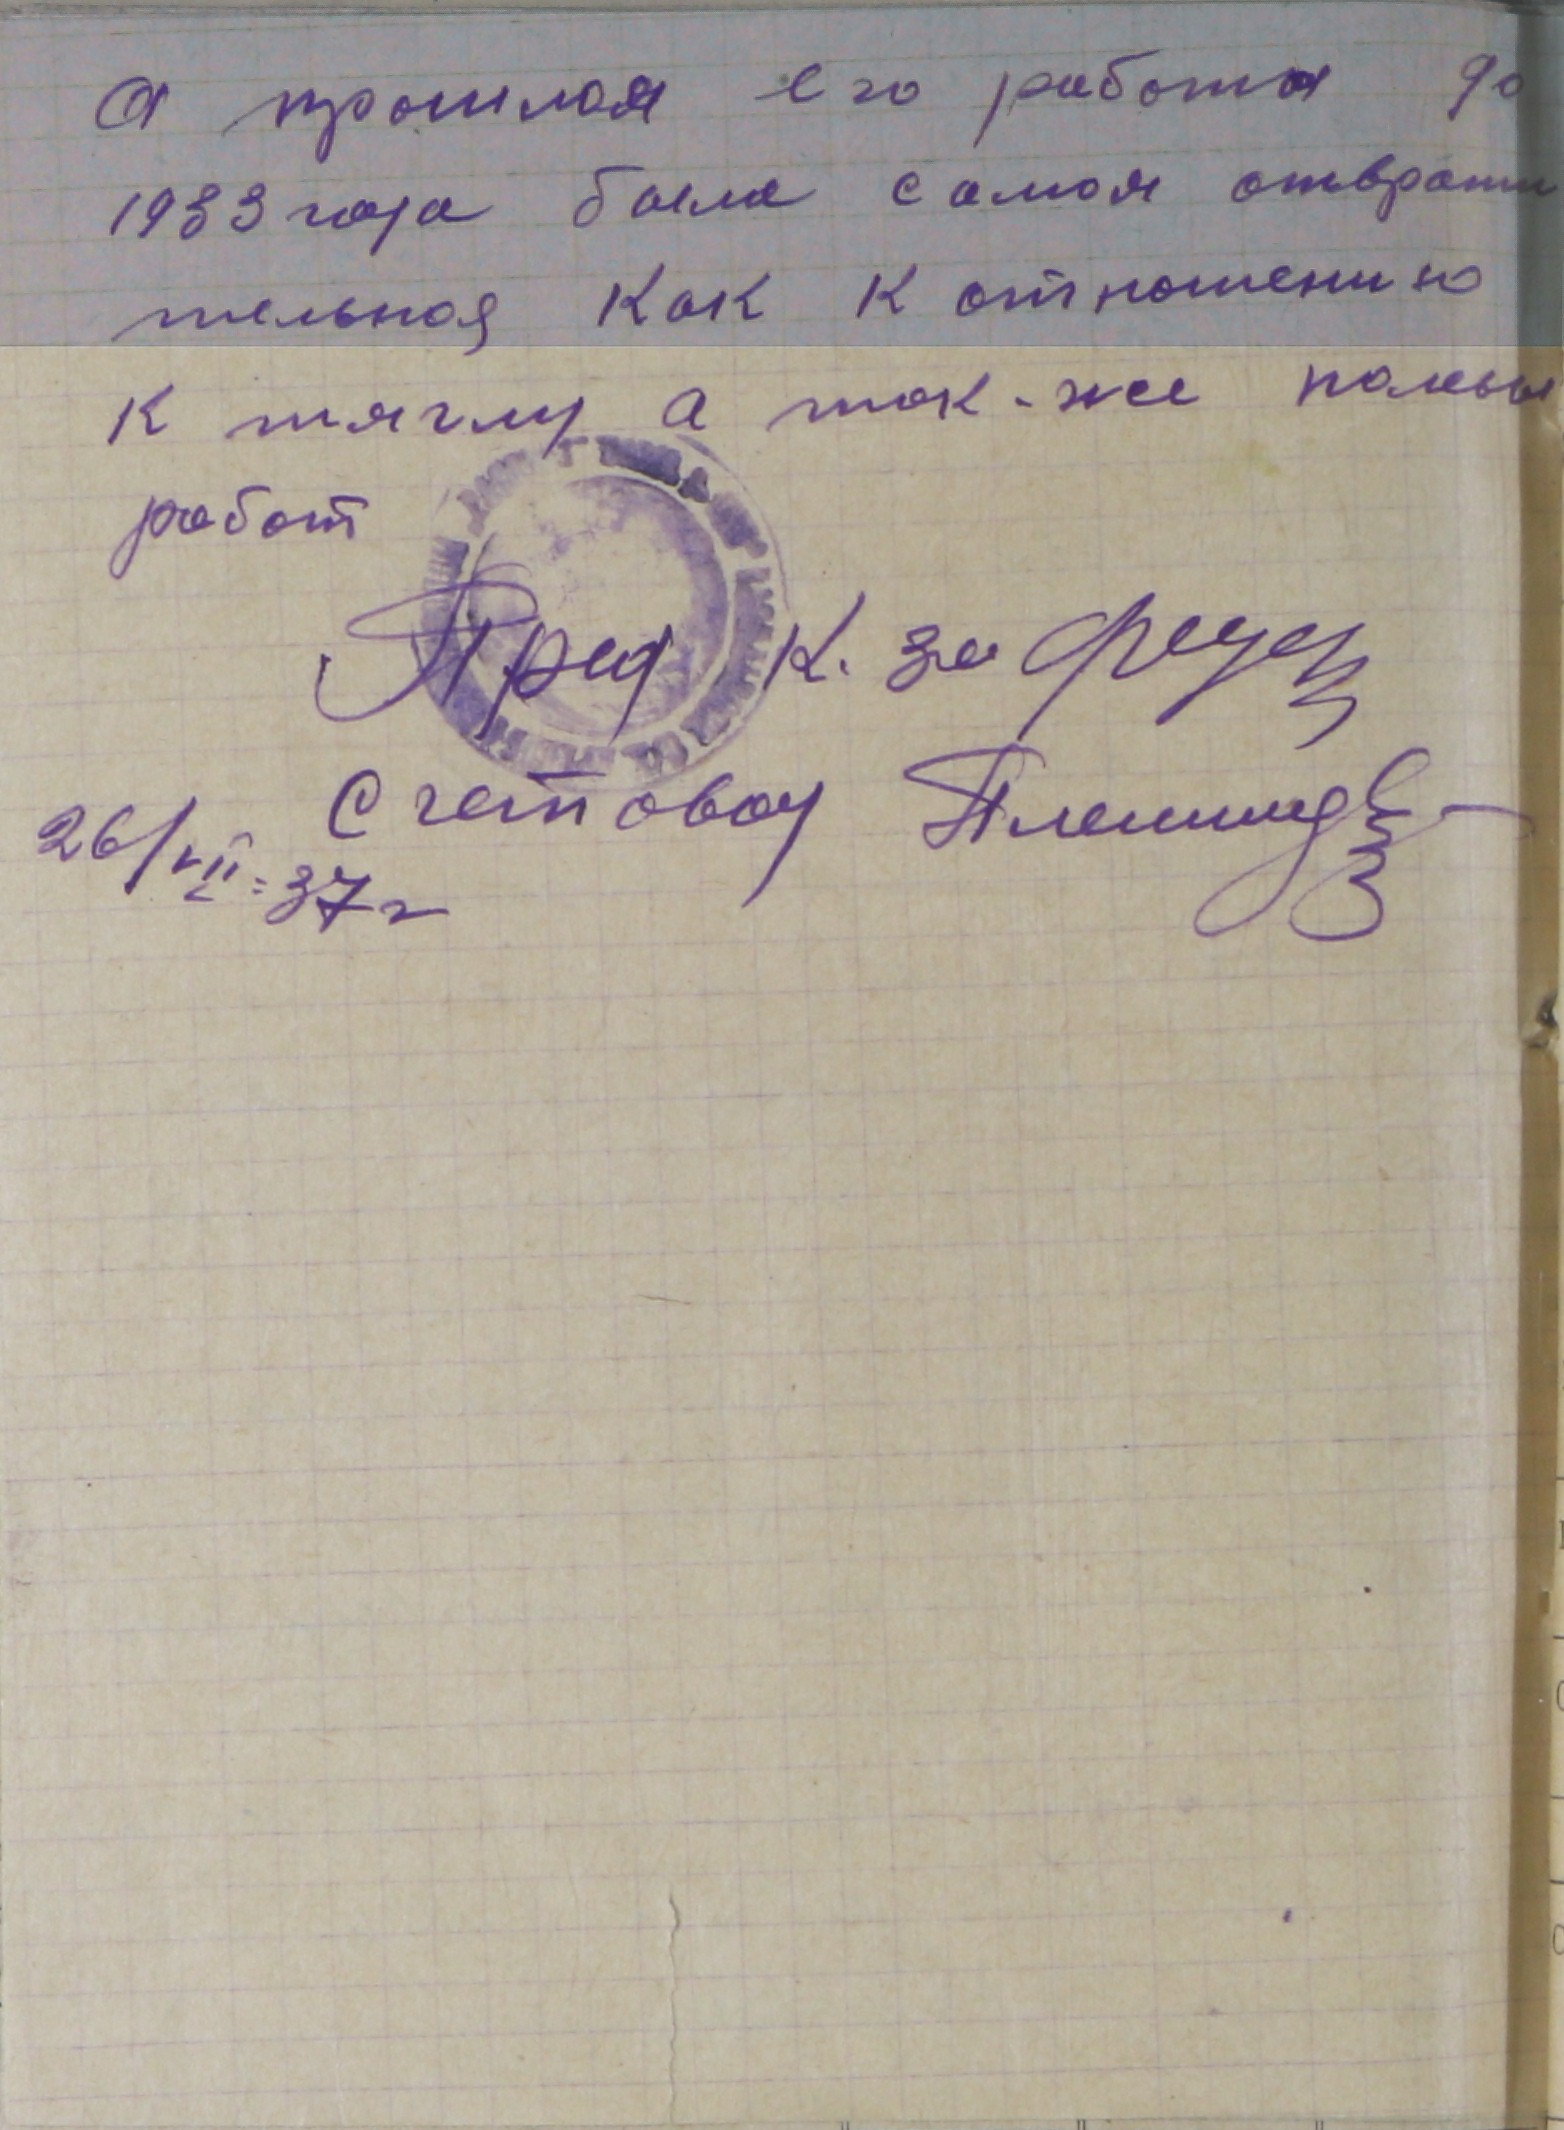 А прошлая его работа до
1933 года была самая отврати
тельная как к отношению
к тяглу а так-же полевы
работ
Пред к. за
Счетовод
26/VII-37 г